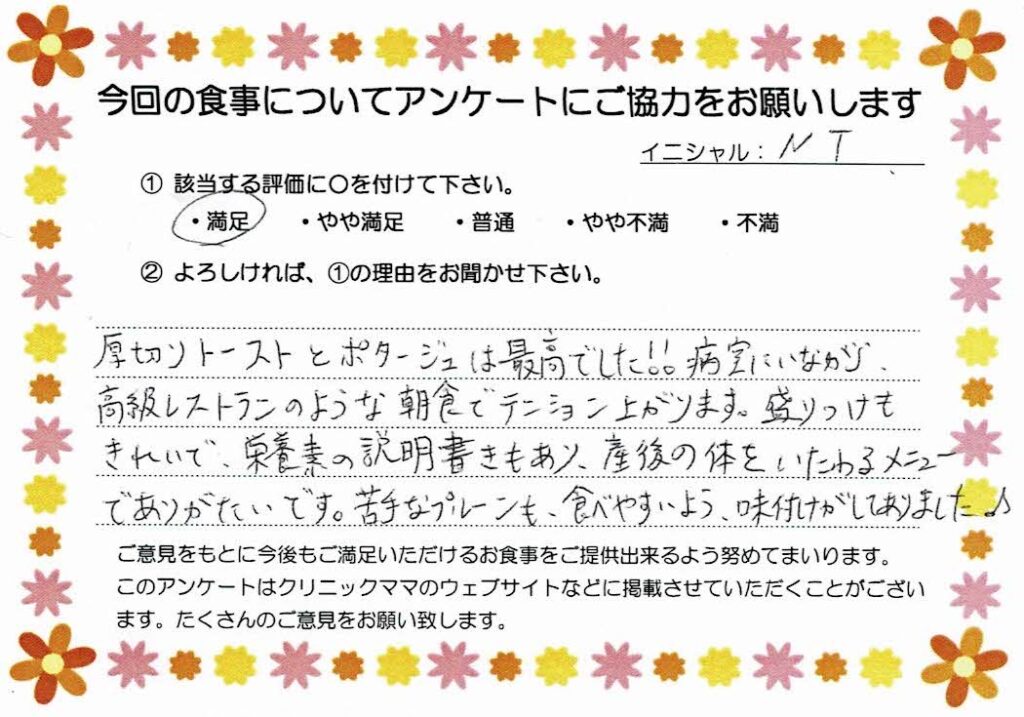 今回の食事についてアンケートにご協力をお願いします
イニシャル：N T
① 該当する評価に〇を付けて下さい。
・満足 ・やや満足 ・普通 ・やや不満 ・不満
② よろしければ、①の理由をお聞かせ下さい。
厚切りトーストとポタージュは最高でした!! 病室にいながら、
高級レストランのような朝食でテンション上がります。盛りつけも
きれいで、栄養素の説明書きもあり、産後の体をいたわるメニュー
でありがたいです。苦手なプルーンも、食べやすいよう、味付けがしてありました♪
ご意見をもとに今後もご満足いただけるお食事をご提供出来るよう努めてまいります。
このアンケートはクリニックママのウェブサイトなどに掲載させていただくことがござい
ます。たくさんのご意見をお願い致します。